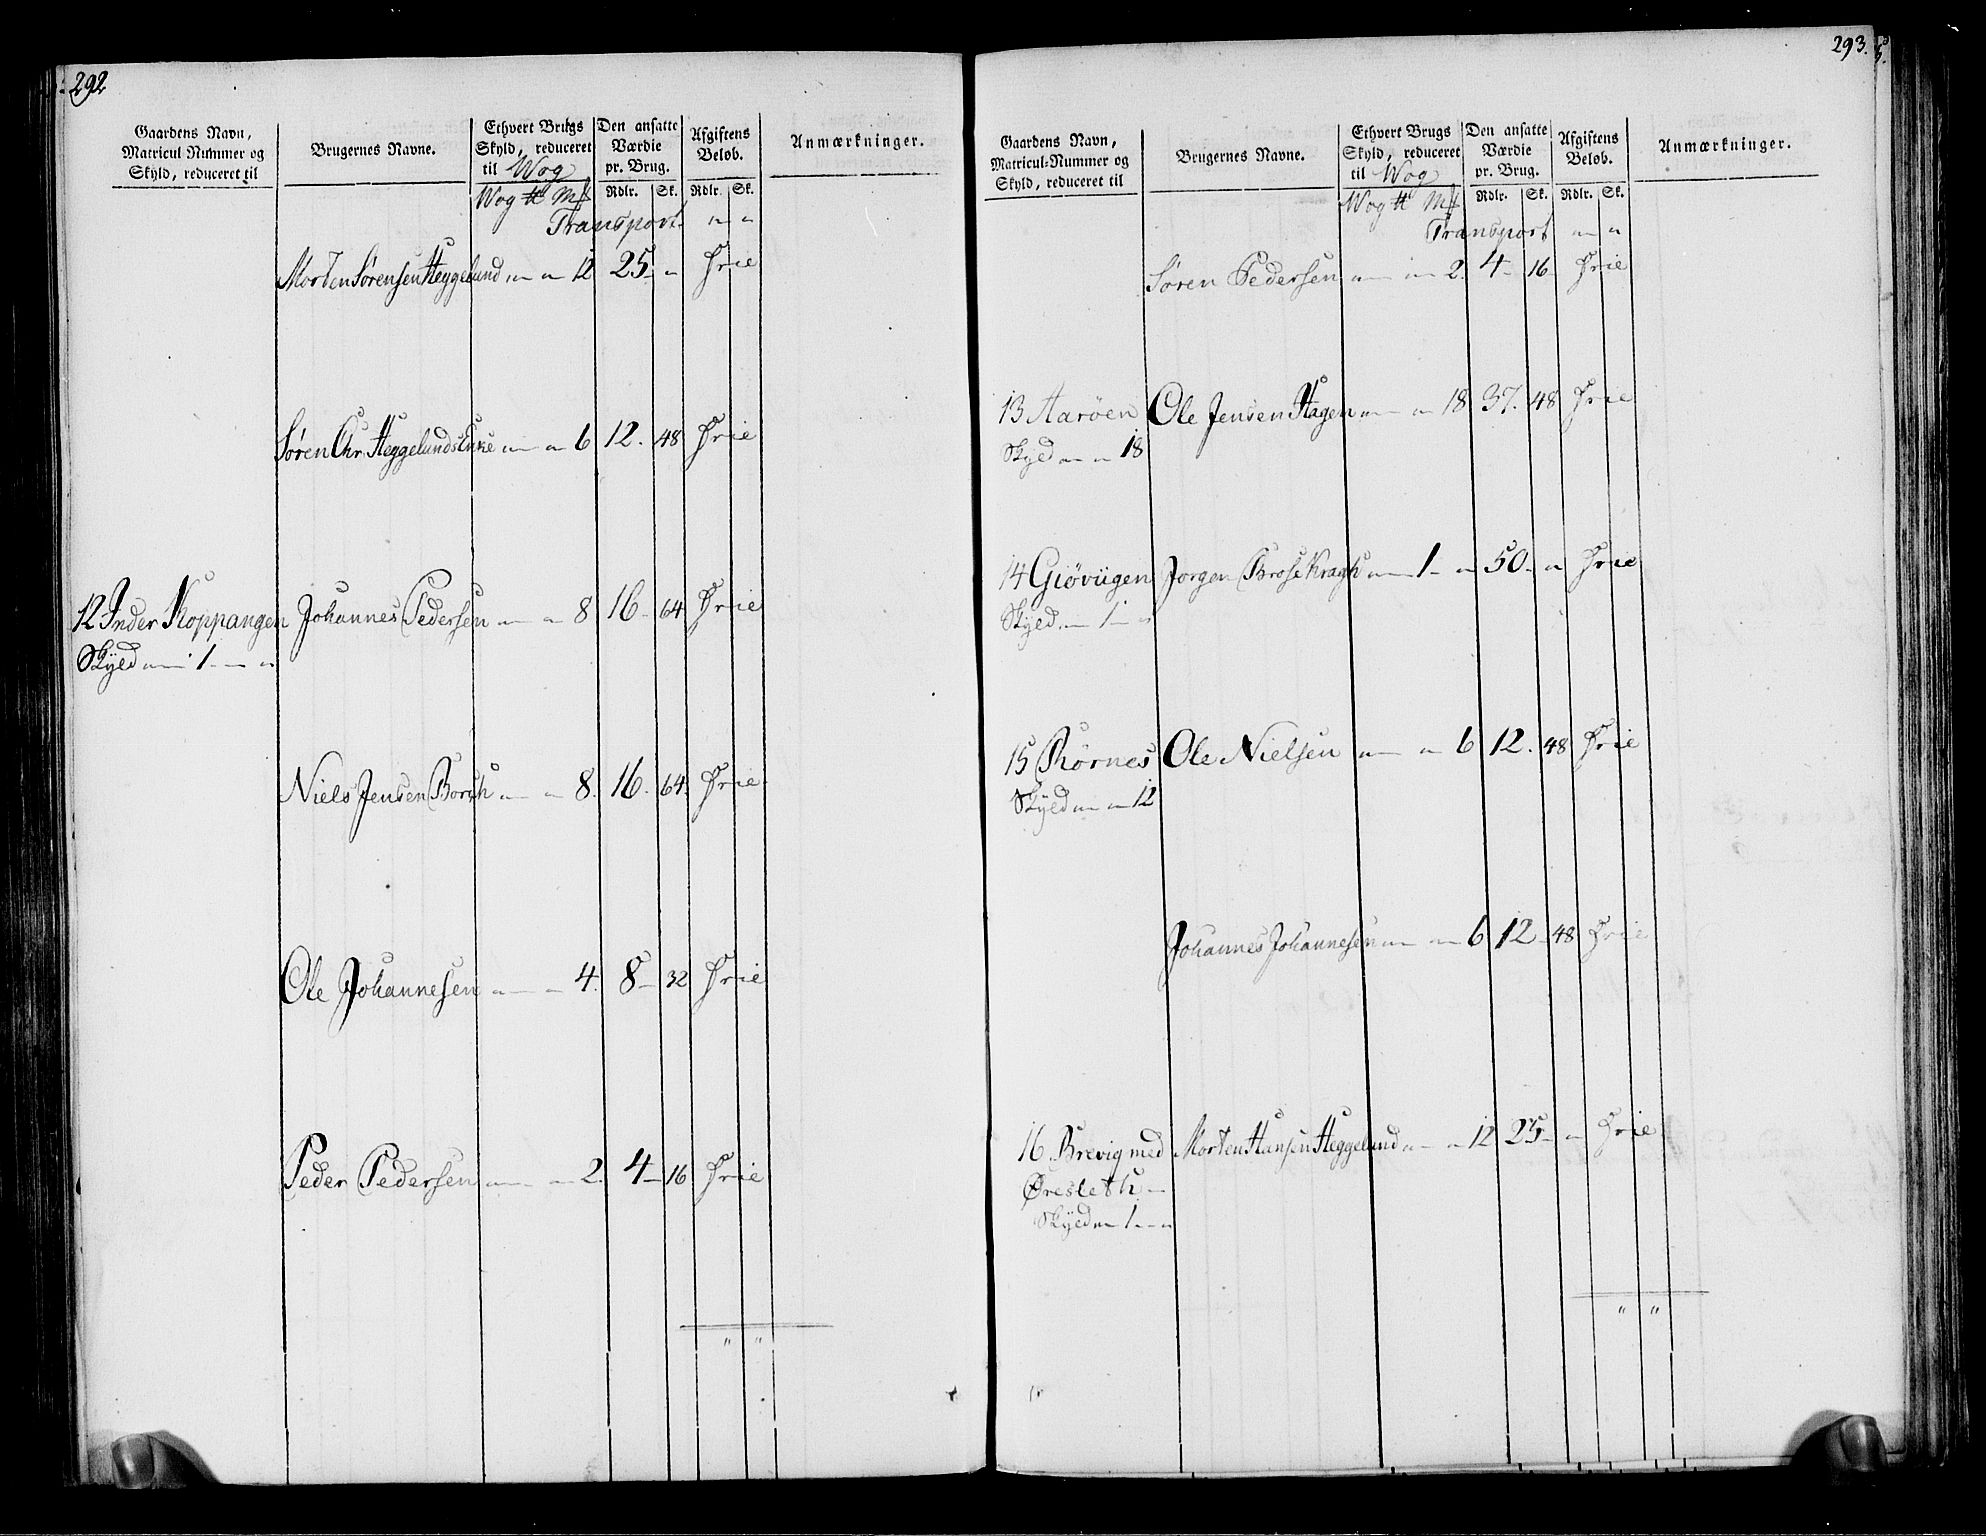 292
Gaardens Navn, Matricul-Nummer og Skyld, reduceret til
Brugernes Navne.
Ethvert Brugs Skyld, reduceret til Wog
Den ansatte Værdie pr. Brug.
Afgiftens Beløb.
Anmærkninger.
Wog ℔ Mk Rdlr. Sk. Rdlr. Sk.
Transport " "
Morten Sørensen Heggelund " " 12 25 - " Frie
Søren Chr Heggelunds Enke " " 6 12. 48 Frie
12 Inder Koppangen Johannes Pedersen " " 8 16 - 64 Frie
Skyld " 1 - "
Niels Jensen Borch " " 8. 16. 64. Frie
Ole Johannesen " " 4. 8 - 32 Frie
Peder Pedersen " " 2. 4 - 16 Frie
" "
293.
Gaardens Navn, Matricul-Nummer og Skyld, reduceret til
Brugernes Navne.
Ethvert Brugs Skyld, reduceret til Wog
Den ansatte Værdie pr. Brug.
Afgiftens Beløb.
Anmærkninger.
Wog ℔ Mk Rdlr. Sk. Rdlr. Sk.
Transport " "
Søren Pedersen " " 2. 4 - 16 Frie
13 Aarøen Ole Jensen Hagen " " 18 37. 48 Frie
Skyld " " 18
14 Giøviigen Jørgen Brose Kragh " 1 - " 50 - " Frie
Skyld " 1 - "
15 Rørnes Ole Nielsen " " 6 12. 48 Frie
Skyld " " 12
Johannes Johannesen " " 6 12 - 48 Frie
16 Brevig med Morten Hansen Heggelund " " 12 25 - " Frie
Øresleth -
Skyld " 1 - "
" "